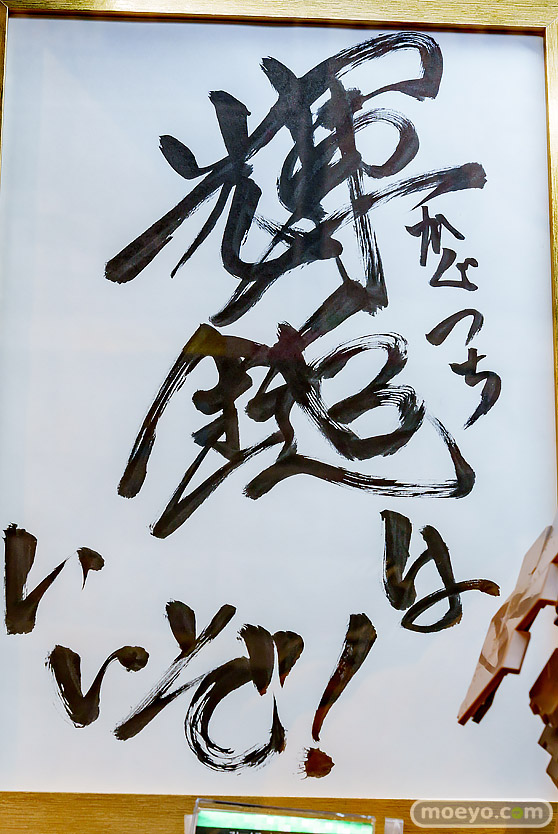 輝鎚
かぐつち
は
いいぞ!
moeyo.com